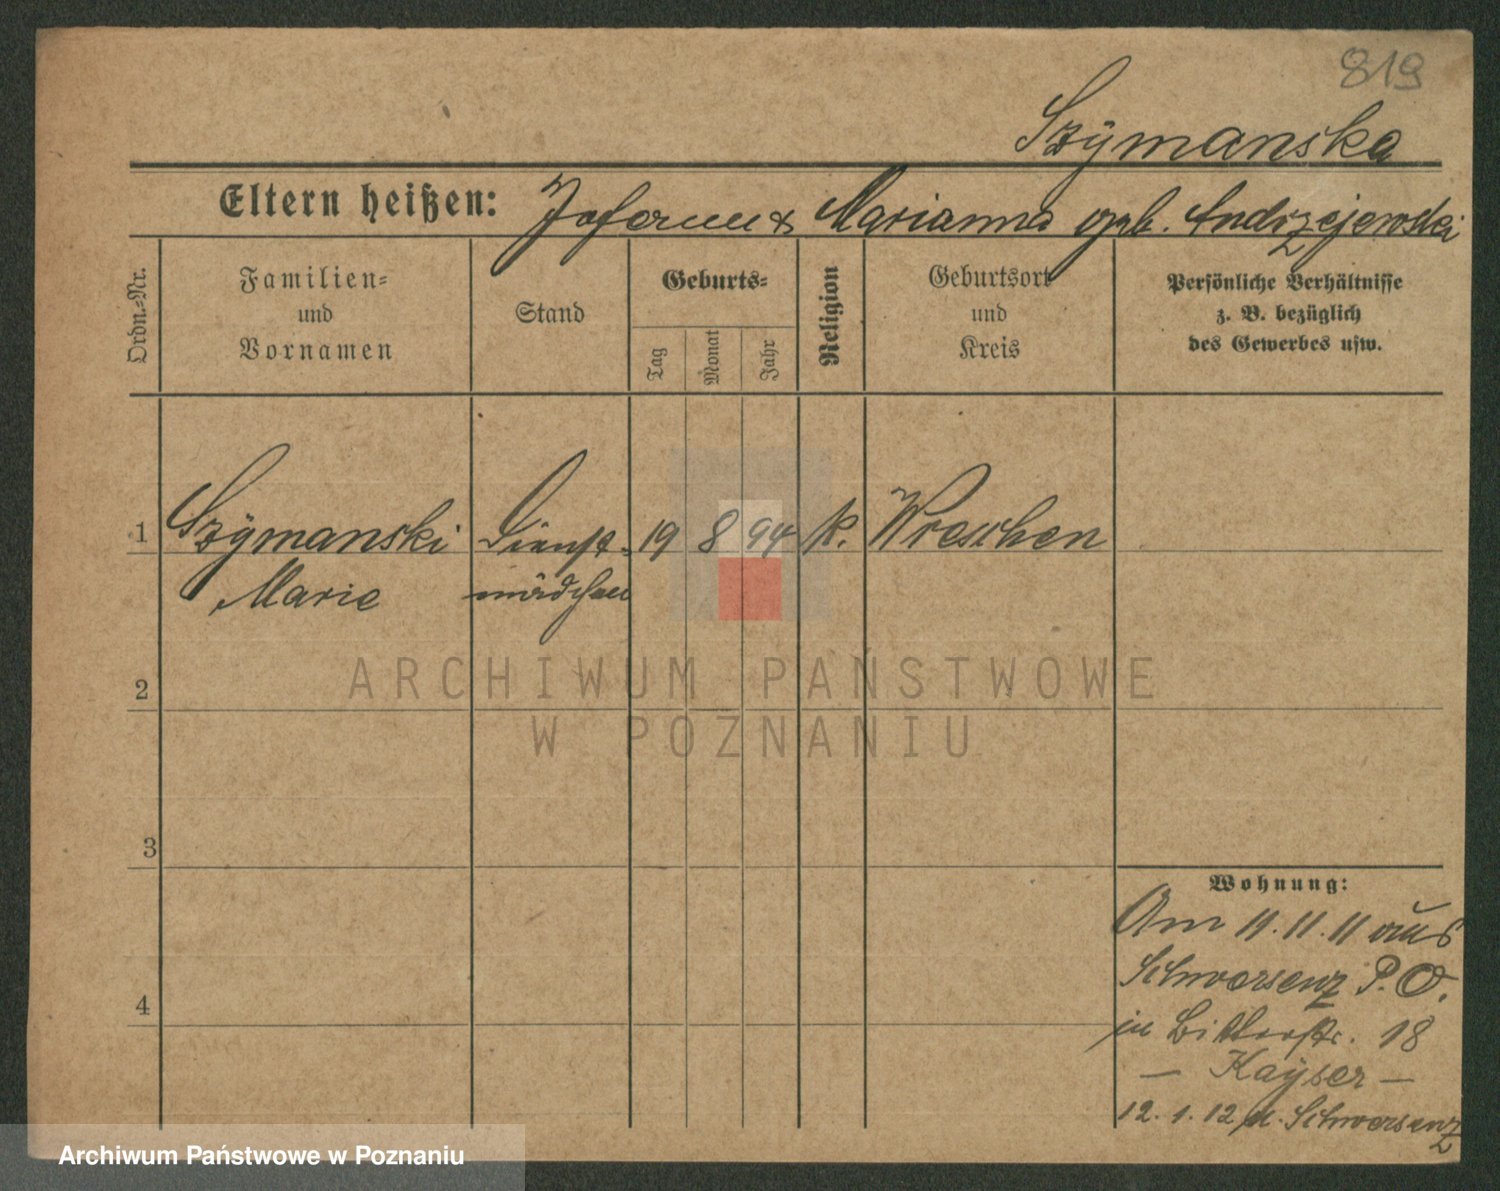 819
Szÿmanska
Eltern heißen: Johann & Marianna geb. Andrzejewski
Ordn.-Nr.
Familien-
und
Vornamen
Stand
Geburts-
Tag
Monat
Jahr
Religion
Geburtsort
und
Kreis
Persönliche Verhältnisse
z. B. bezüglich
des Gewerbes usw.
1 Szÿmanski Dienst- 19 8 94 k. Wreschen
Marie mädchen
2
3
4
Wohnung:
Am 11.11.11 aus
Schwersenz P.O.
in Bitterstr. 18
— Kaÿser —
12.1.12 n. Schwersenz
ARCHIWUM PAŃSTWOWE
W POZNANIU
Archiwum Państwowe w Poznaniu